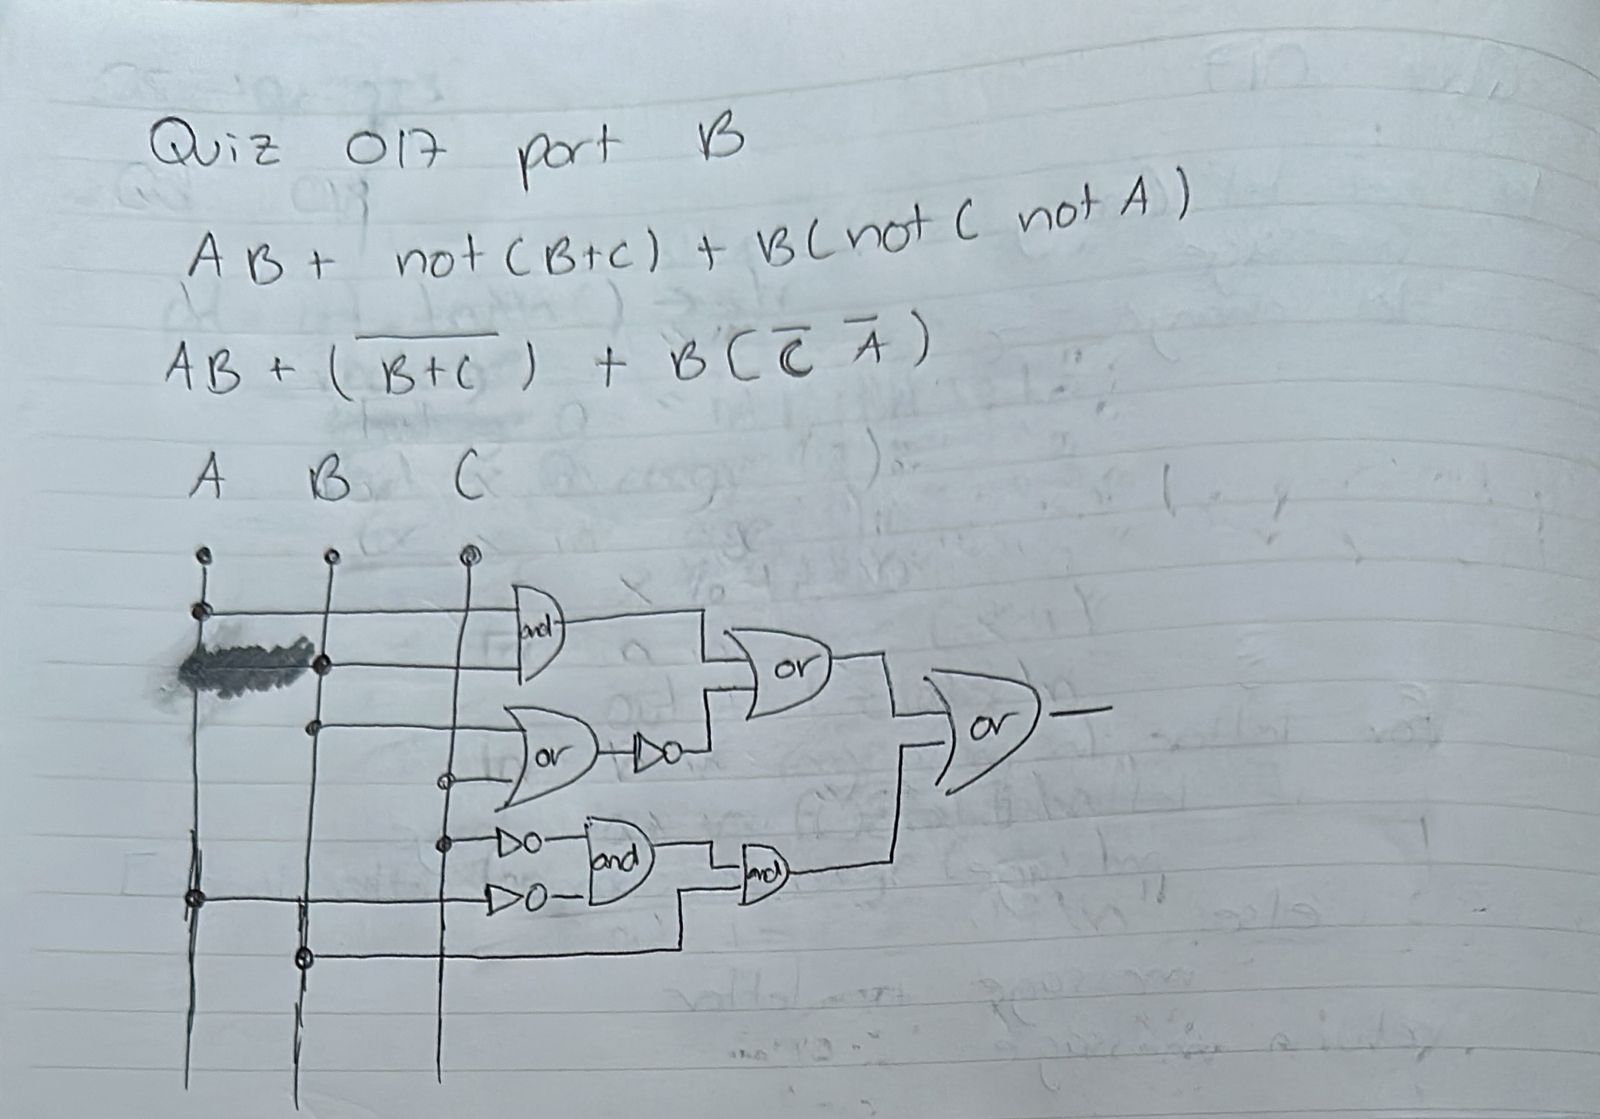 Quiz 017 part B
AB + not (B+C) + B(not C not A)
AB + (B̅+̅C̅) + B(C̅ A̅)
A B C
and
or
or
or
and
and